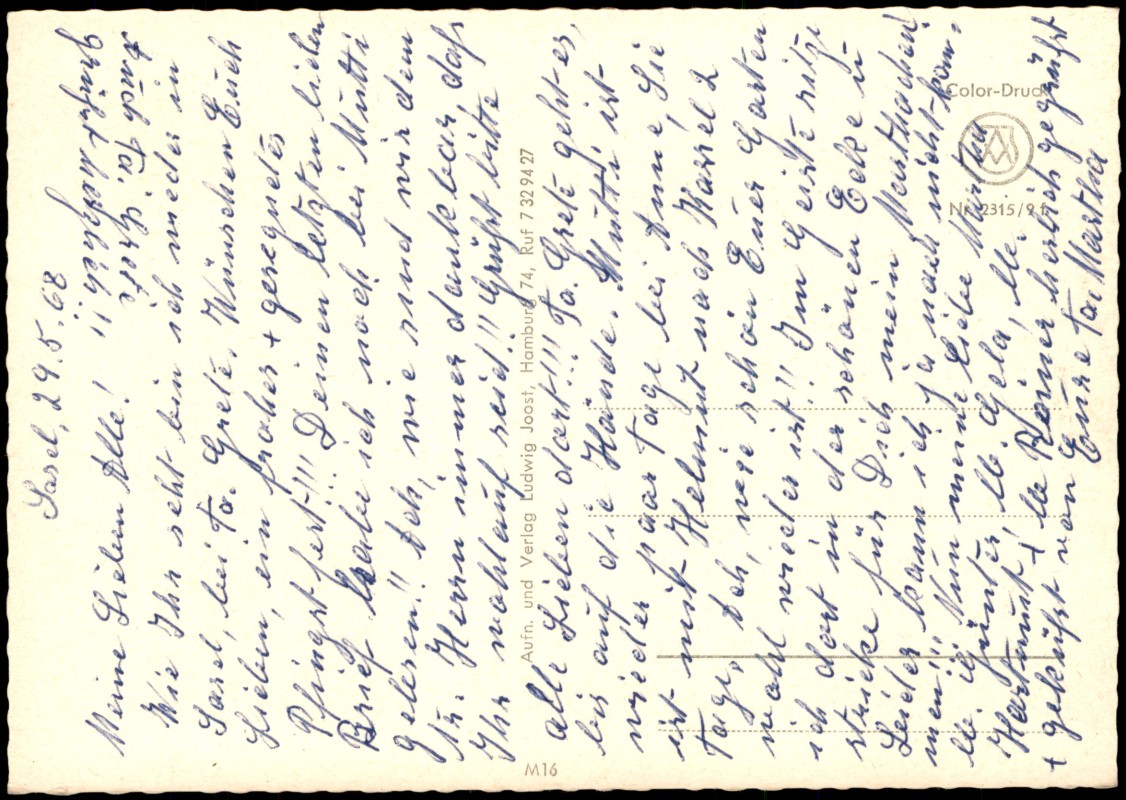 Sasel, 29.5.68
Meine Lieben Alle!
Wie Ihr seht bin ich wieder in
Sasel, bei Ta. Grete. Wünschen Euch
Lieben, ein frohes + gesegnetes
Pfingstfest!!! Deinen letzten lieben
Brief habe ich noch bei Mutti
gelesen!! Ach, wie sind wir dem
Hr. Herrn immer dankbar, daß
Ihr wohlauf seid!! Grüßt bitte
alle Lieben dort!!! Ta. Grete geht es,
bis auf die Hände. Mutti, ist
wieder paar Tage bei Anne, Sie
ist mit Helmut nach Kassel 2
Tage. Ach, wie schön Euer Garten
wohl wieder ist!! Im Geiste sitze
ich dort in der schönen Ecke u
stricke für Dich mein Marthachen!
Leider kann ich ja noch nicht kom-
men!!! Nun meine liebe Martha
lb. Günter, lb. Gela, lb.
Hartmut + lb Rainer herzlich gegrüßt
+ geküßt von Eure Ta Martha
Ta. Grete
Aufn. und Verlag Ludwig Joost, Hamburg 74, Ruf 7 32 94 27
Color-Druck
Nr. 2315/9 f
M16